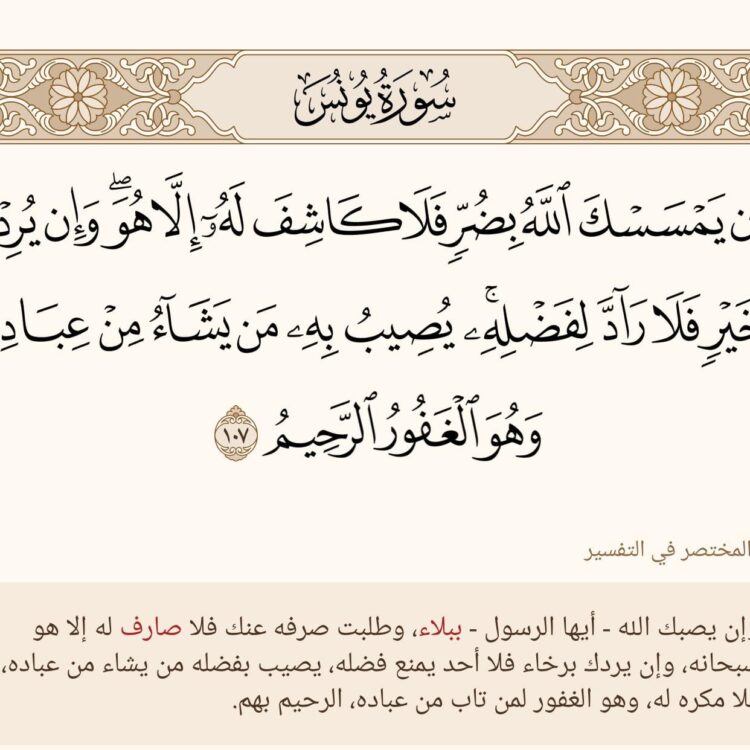 سُورَةُ يُونُسَ
ن يَمْسَسْكَ ٱللَّهُ بِضُرٍّ فَلَا كَاشِفَ لَهُۥٓ إِلَّا هُوَۖ وَإِن يُرِدْ
خَيْرٍ فَلَا رَآدَّ لِفَضْلِهِۦۚ يُصِيبُ بِهِۦ مَن يَشَآءُ مِنْ عِبَادِ
وَهُوَ ٱلْغَفُورُ ٱلرَّحِيمُ ١٠٧
المختصر في التفسير
إن يصبك الله - أيها الرسول - ببلاء، وطلبت صرفه عنك فلا صارف له إلا هو
سبحانه، وإن يردك برخاء فلا أحد يمنع فضله، يصيب بفضله من يشاء من عباده،
لا مكره له، وهو الغفور لمن تاب من عباده، الرحيم بهم.